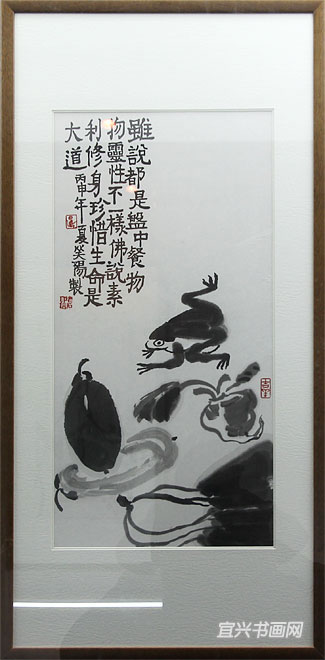 雖說都是盤中餐物
物靈性不一樣佛說素
利修身珍惜生命是
大道丙申年夏笑陽製
宜兴书画网